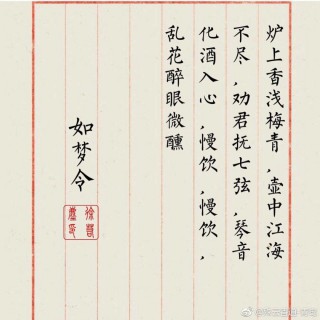 炉上香浅梅青，壶中江海
不尽，劝君抚七弦，琴音
化酒入心，慢饮，慢饮，
乱花醉眼微醺
如梦令